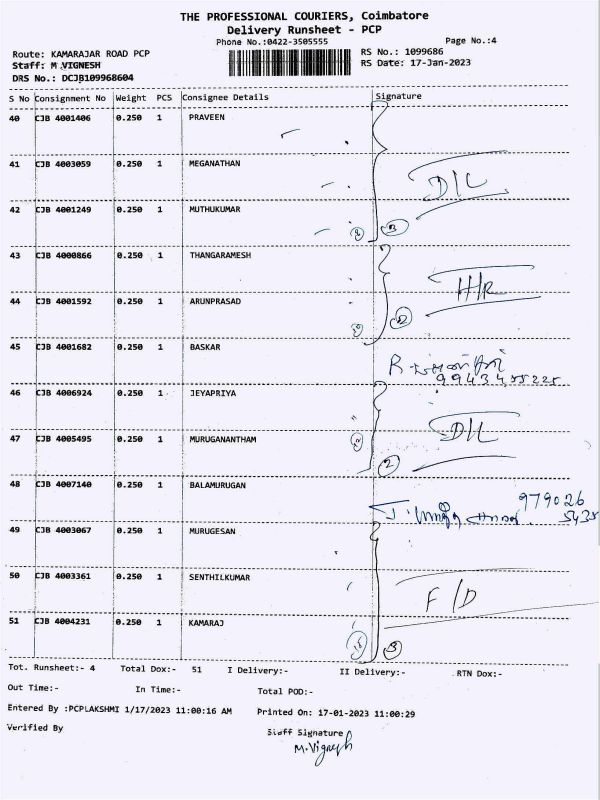 THE PROFESSIONAL COURIERS, Coimbatore
Delivery Runsheet - PCP
Phone No.:0422-3505555 Page No.:4
Route: KAMARAJAR ROAD PCP RS No.: 1099686
Staff: M VIGNESH RS Date: 17-Jan-2023
DRS No.: DCJB109968604
S No Consignment No Weight PCS Consignee Details Signature
40 CJB 4001406 0.250 1 PRAVEEN
41 CJB 4003059 0.250 1 MEGANATHAN D/L
42 CJB 4001249 0.250 1 MUTHUKUMAR 3
43 CJB 4000866 0.250 1 THANGARAMESH H/R
44 CJB 4001592 0.250 1 ARUNPRASAD
45 CJB 4001682 0.250 1 BASKAR
46 CJB 4006924 0.250 1 JEYAPRIYA
47 CJB 4005495 0.250 1 MURUGANANTHAM D/L 2
48 CJB 4007140 0.250 1 BALAMURUGAN 979026
5435
49 CJB 4003067 0.250 1 MURUGESAN
50 CJB 4003361 0.250 1 SENTHILKUMAR F/D
51 CJB 4004231 0.250 1 KAMARAJ 3
Tot. Runsheet:- 4 Total Dox:- 51 I Delivery:- II Delivery:- RTN Dox:-
Out Time:- In Time:- Total POD:-
Entered By :PCPLAKSHMI 1/17/2023 11:00:16 AM Printed On: 17-01-2023 11:00:29
Verified By Staff Signature
M.Vignesh